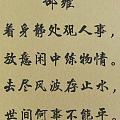 邵雍
着身静处观人事，
放意闲中练物情。
去尽风波存止水，
世间何事不能平。